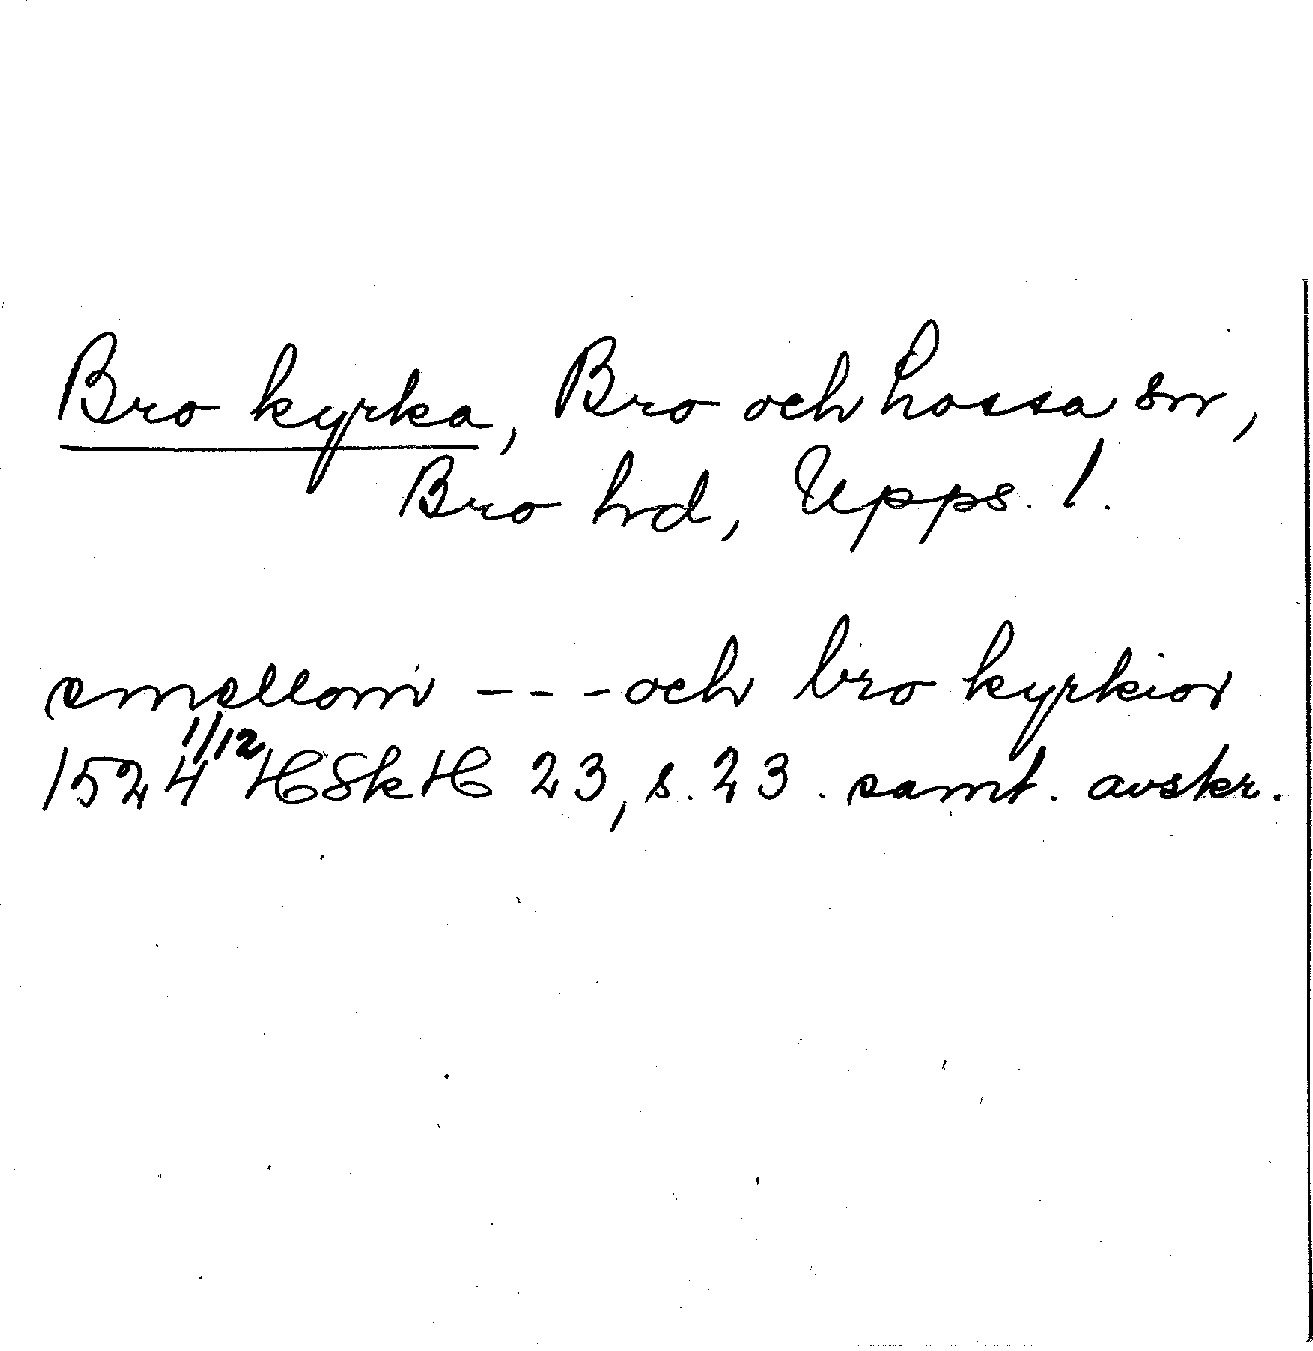 Bro kyrka, Bro och Lossa snr,
Bro hrd, Upps. l.
emellom - - - och bro kyrkior
1524 1/12 HSkH 23, s. 23. samt. avskr.